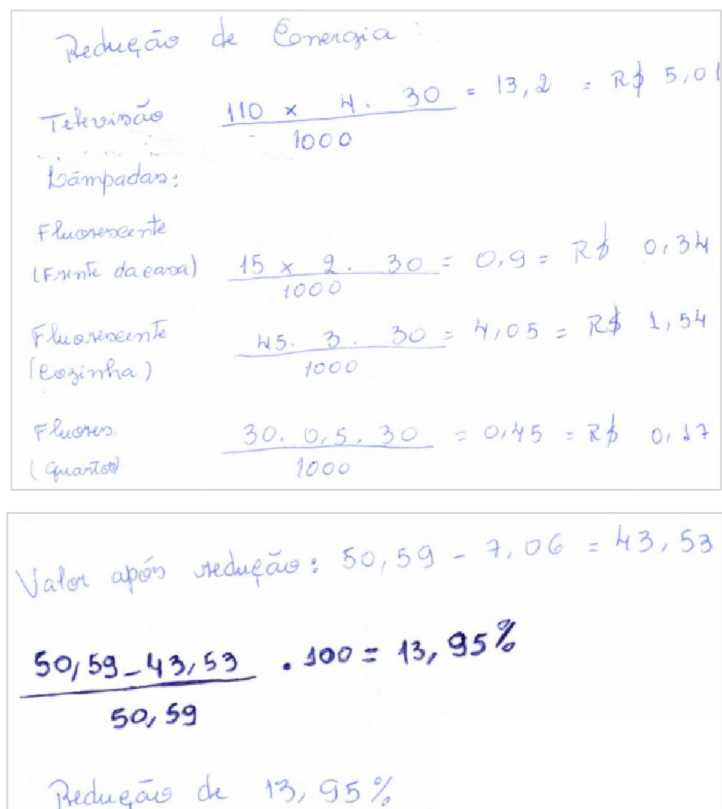 Redução de Energia:
Televisão 110 x 4. 30 = 13,2 = R$ 5,01
1000
Lâmpadas:
Fluorescente
(Frente da casa) 15 x 2. 30 = 0,9 = R$ 0,34
1000
Fluorescente
(Cozinha) 45. 3. 30 = 4,05 = R$ 1,54
1000
Fluores.
(Quartos) 30. 0,5. 30 = 0,45 = R$ 0,17
1000
Valor após redução: 50,59 - 7,06 = 43,53
50,59 - 43,53 . 100 = 13,95%
50,59
Redução de 13,95%